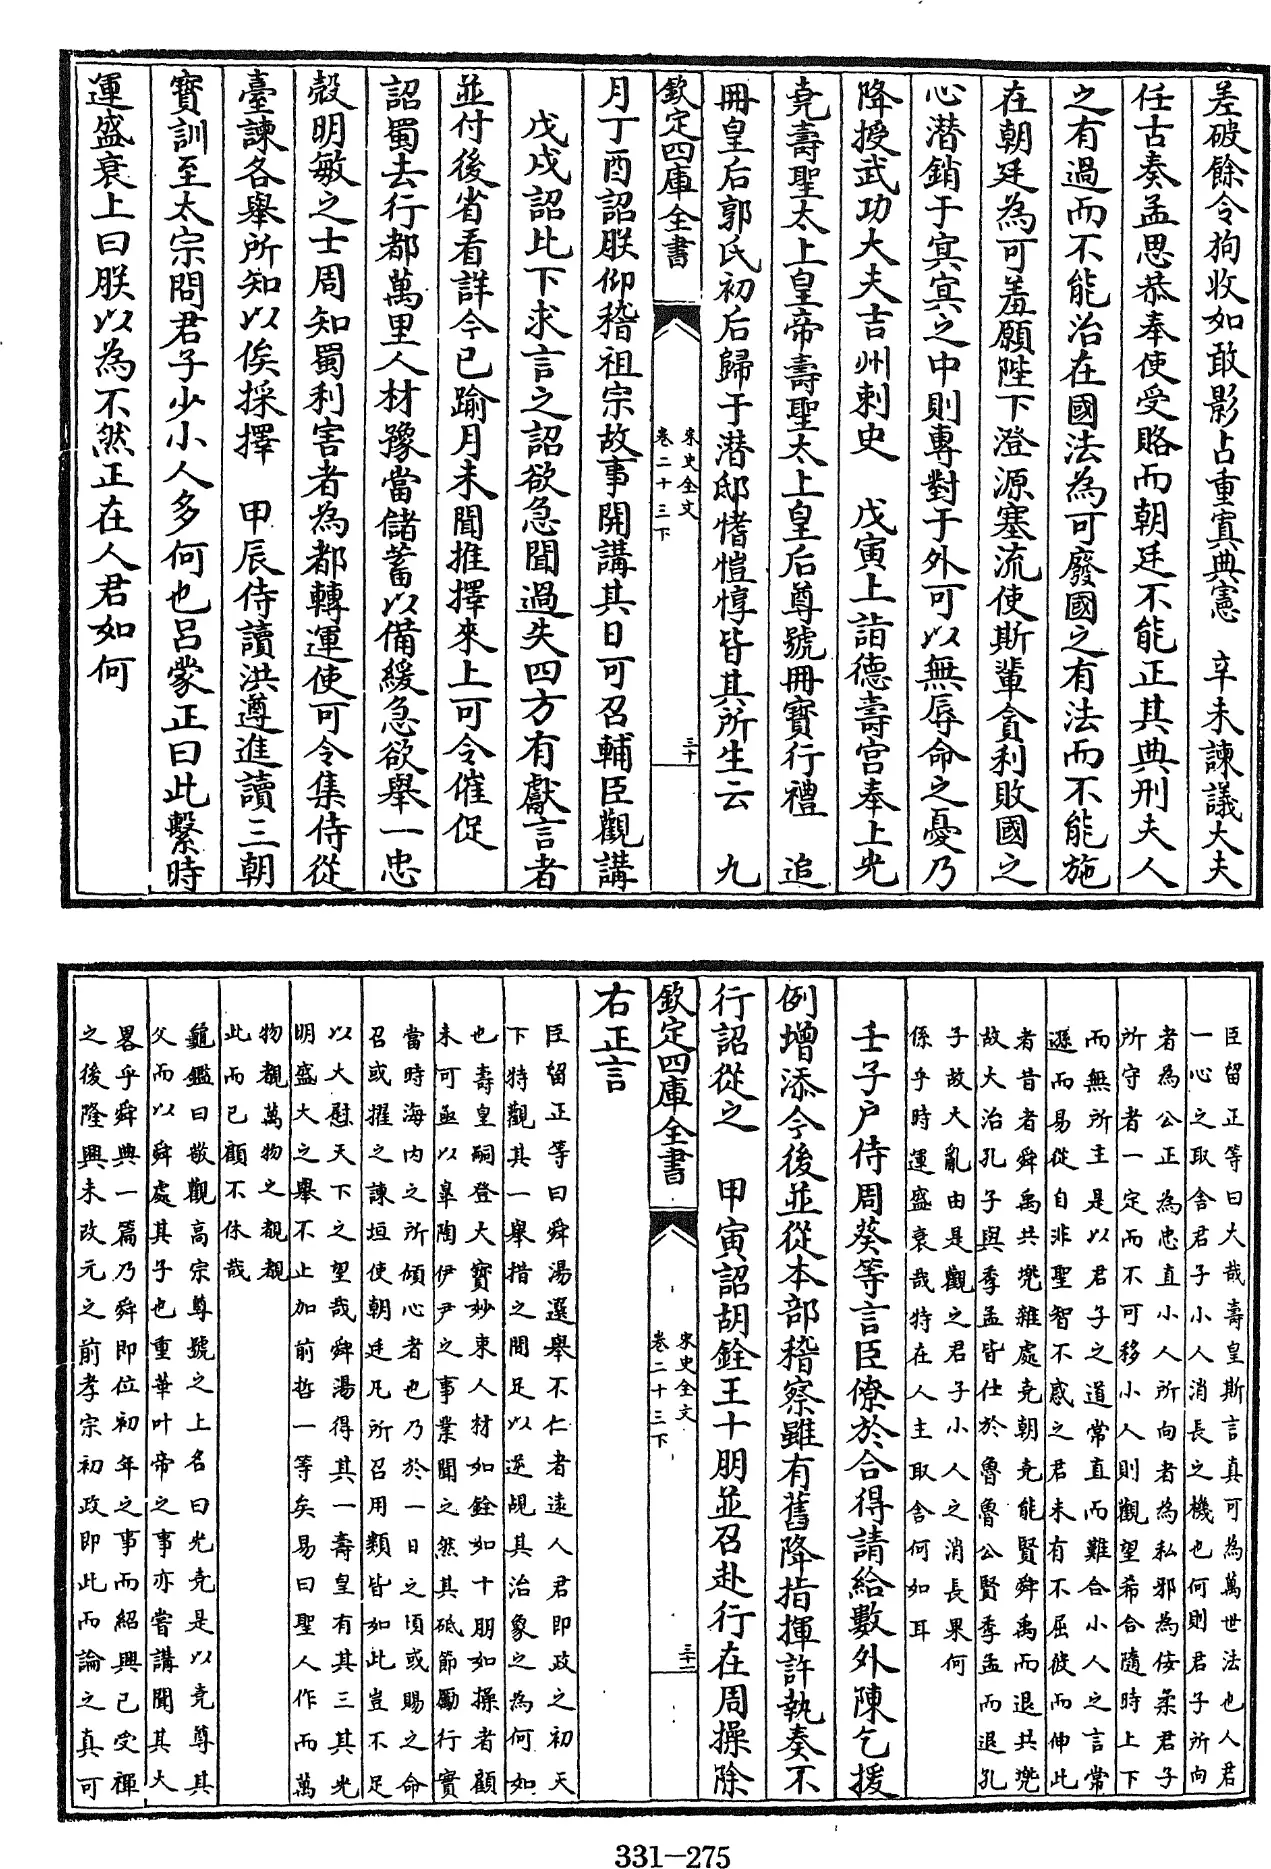 差破餘令狥收如敢影占重寘典憲　辛未諫議大夫
任古奏孟思恭奉使受賂而朝廷不能正其典刑夫人
之有過而不能治在國法為可廢國之有法而不能施
在朝廷為可羞願陛下澄源塞流使斯輩貪利敗國之
心潛銷于冥冥之中則專對于外可以無辱命之憂乃
降授武功大夫吉州刺史　戊寅上詣德壽宮奉上光
堯壽聖太上皇帝壽聖太上皇后尊號冊寶行禮　追
冊皇后郭氏初后歸于潛邸愭愷惇皆其所生云　九
欽定四庫全書
宋史全文
卷二十三下
三十
月丁酉詔朕仰稽祖宗故事開講其日可召輔臣觀講
戊戌詔比下求言之詔欲急聞過失四方有獻言者
並付後省看詳今已踰月未聞推擇來上可令催促
詔蜀去行都萬里人材豫當儲蓄以備緩急欲舉一忠
慤明敏之士周知蜀利害者為都轉運使可令集侍從
臺諫各舉所知以俟採擇　甲辰侍讀洪遵進讀三朝
寶訓至太宗問君子少小人多何也呂蒙正曰此繫時
運盛衰上曰朕以為不然正在人君如何
臣留正等曰大哉壽皇斯言真可為萬世法也人君
一心之取舍君子小人消長之機也何則君子所向
者為公正為忠直小人所向者為私邪為佞柔君子
所守者一定而不可移小人則觀望希合隨時上下
而無所主是以君子之道常直而難合小人之言常
遜而易從自非聖智不惑之君未有不屈彼而伸此
者昔者舜禹共兜雜處堯朝堯能賢舜禹而退共兜
故大治孔子與季孟皆仕於魯魯公賢季孟而退孔
子故大亂由是觀之君子小人之消長果何
係乎時運盛衰哉特在人主取舍何如耳
壬子户侍周葵等言臣僚於合得請給數外陳乞援
例增添今後並從本部稽察雖有舊降指揮許執奏不
行詔從之　甲寅詔胡銓王十朋並召赴行在周操除
欽定四庫全書
宋史全文
卷二十三下
三十一
右正言
臣留正等曰舜湯選舉不仁者逺人君即政之初天
下特觀其一舉措之間足以逆覘其治象之為何如
也壽皇嗣登大寶妙柬人材如銓如十朋如操者顧
未可孟以臯陶伊尹之事業聞之然其砥節勵行實
當時海内之所傾心者也乃於一日之頃或賜之命
召或擢之諫垣使朝廷凡所召用類皆如此豈不足
以大慰天下之望哉舜湯得其一壽皇有其三其光
明盛大之舉不止加前哲一等矣易曰聖人作而萬
物覩萬物之覩覩
此而已顧不休哉
龜鑑曰敬觀高宗尊號之上名曰光堯是以堯尊其
父而以舜處其子也重華叶帝之事亦嘗講聞其大
畧乎舜典一篇乃舜即位初年之事而紹興已受禪
之後隆興未改元之前孝宗初政即此而論之真可
331—275